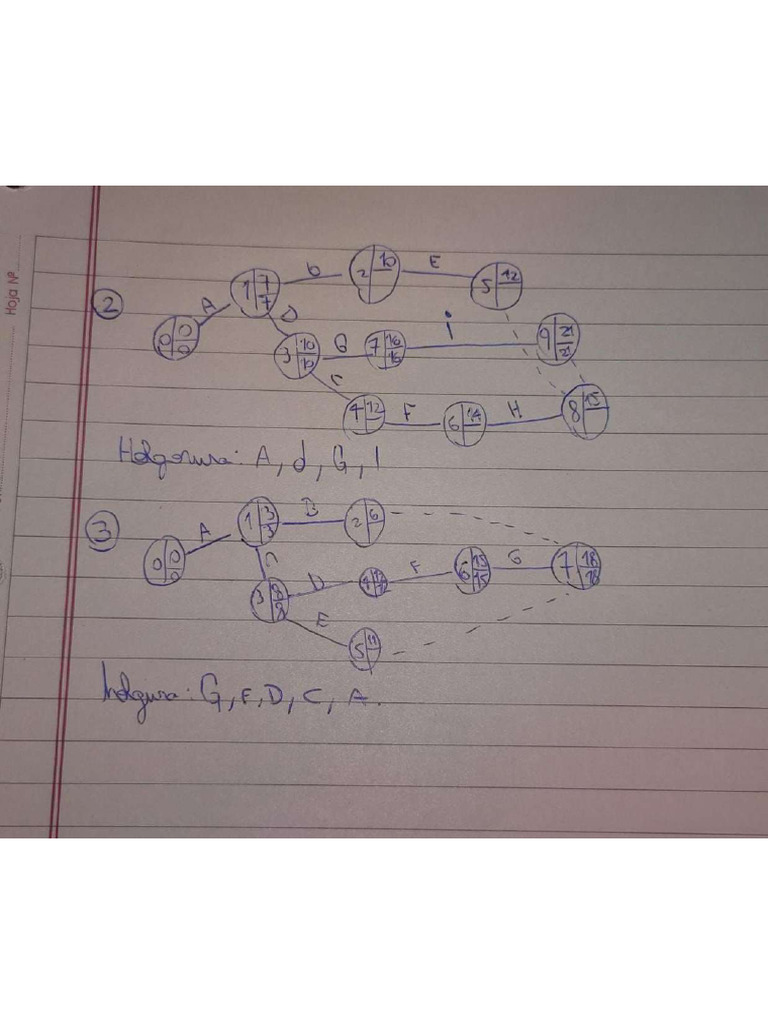 Hoja Nº
②
A
0 0 0
1 7 7
b
2 10
E
5 12
D
3 10 10
G
7 16 16
i
9 21 21
C
4 12
F
6 14
H
8 15
Holgorura: A, d, G, I
③
A
0 0 0
1 3 3
B
2 6
C
3 8 8
D
4
F
6 15 15
G
7 18 18
E
5 11
holgura: G, F, D, C, A.